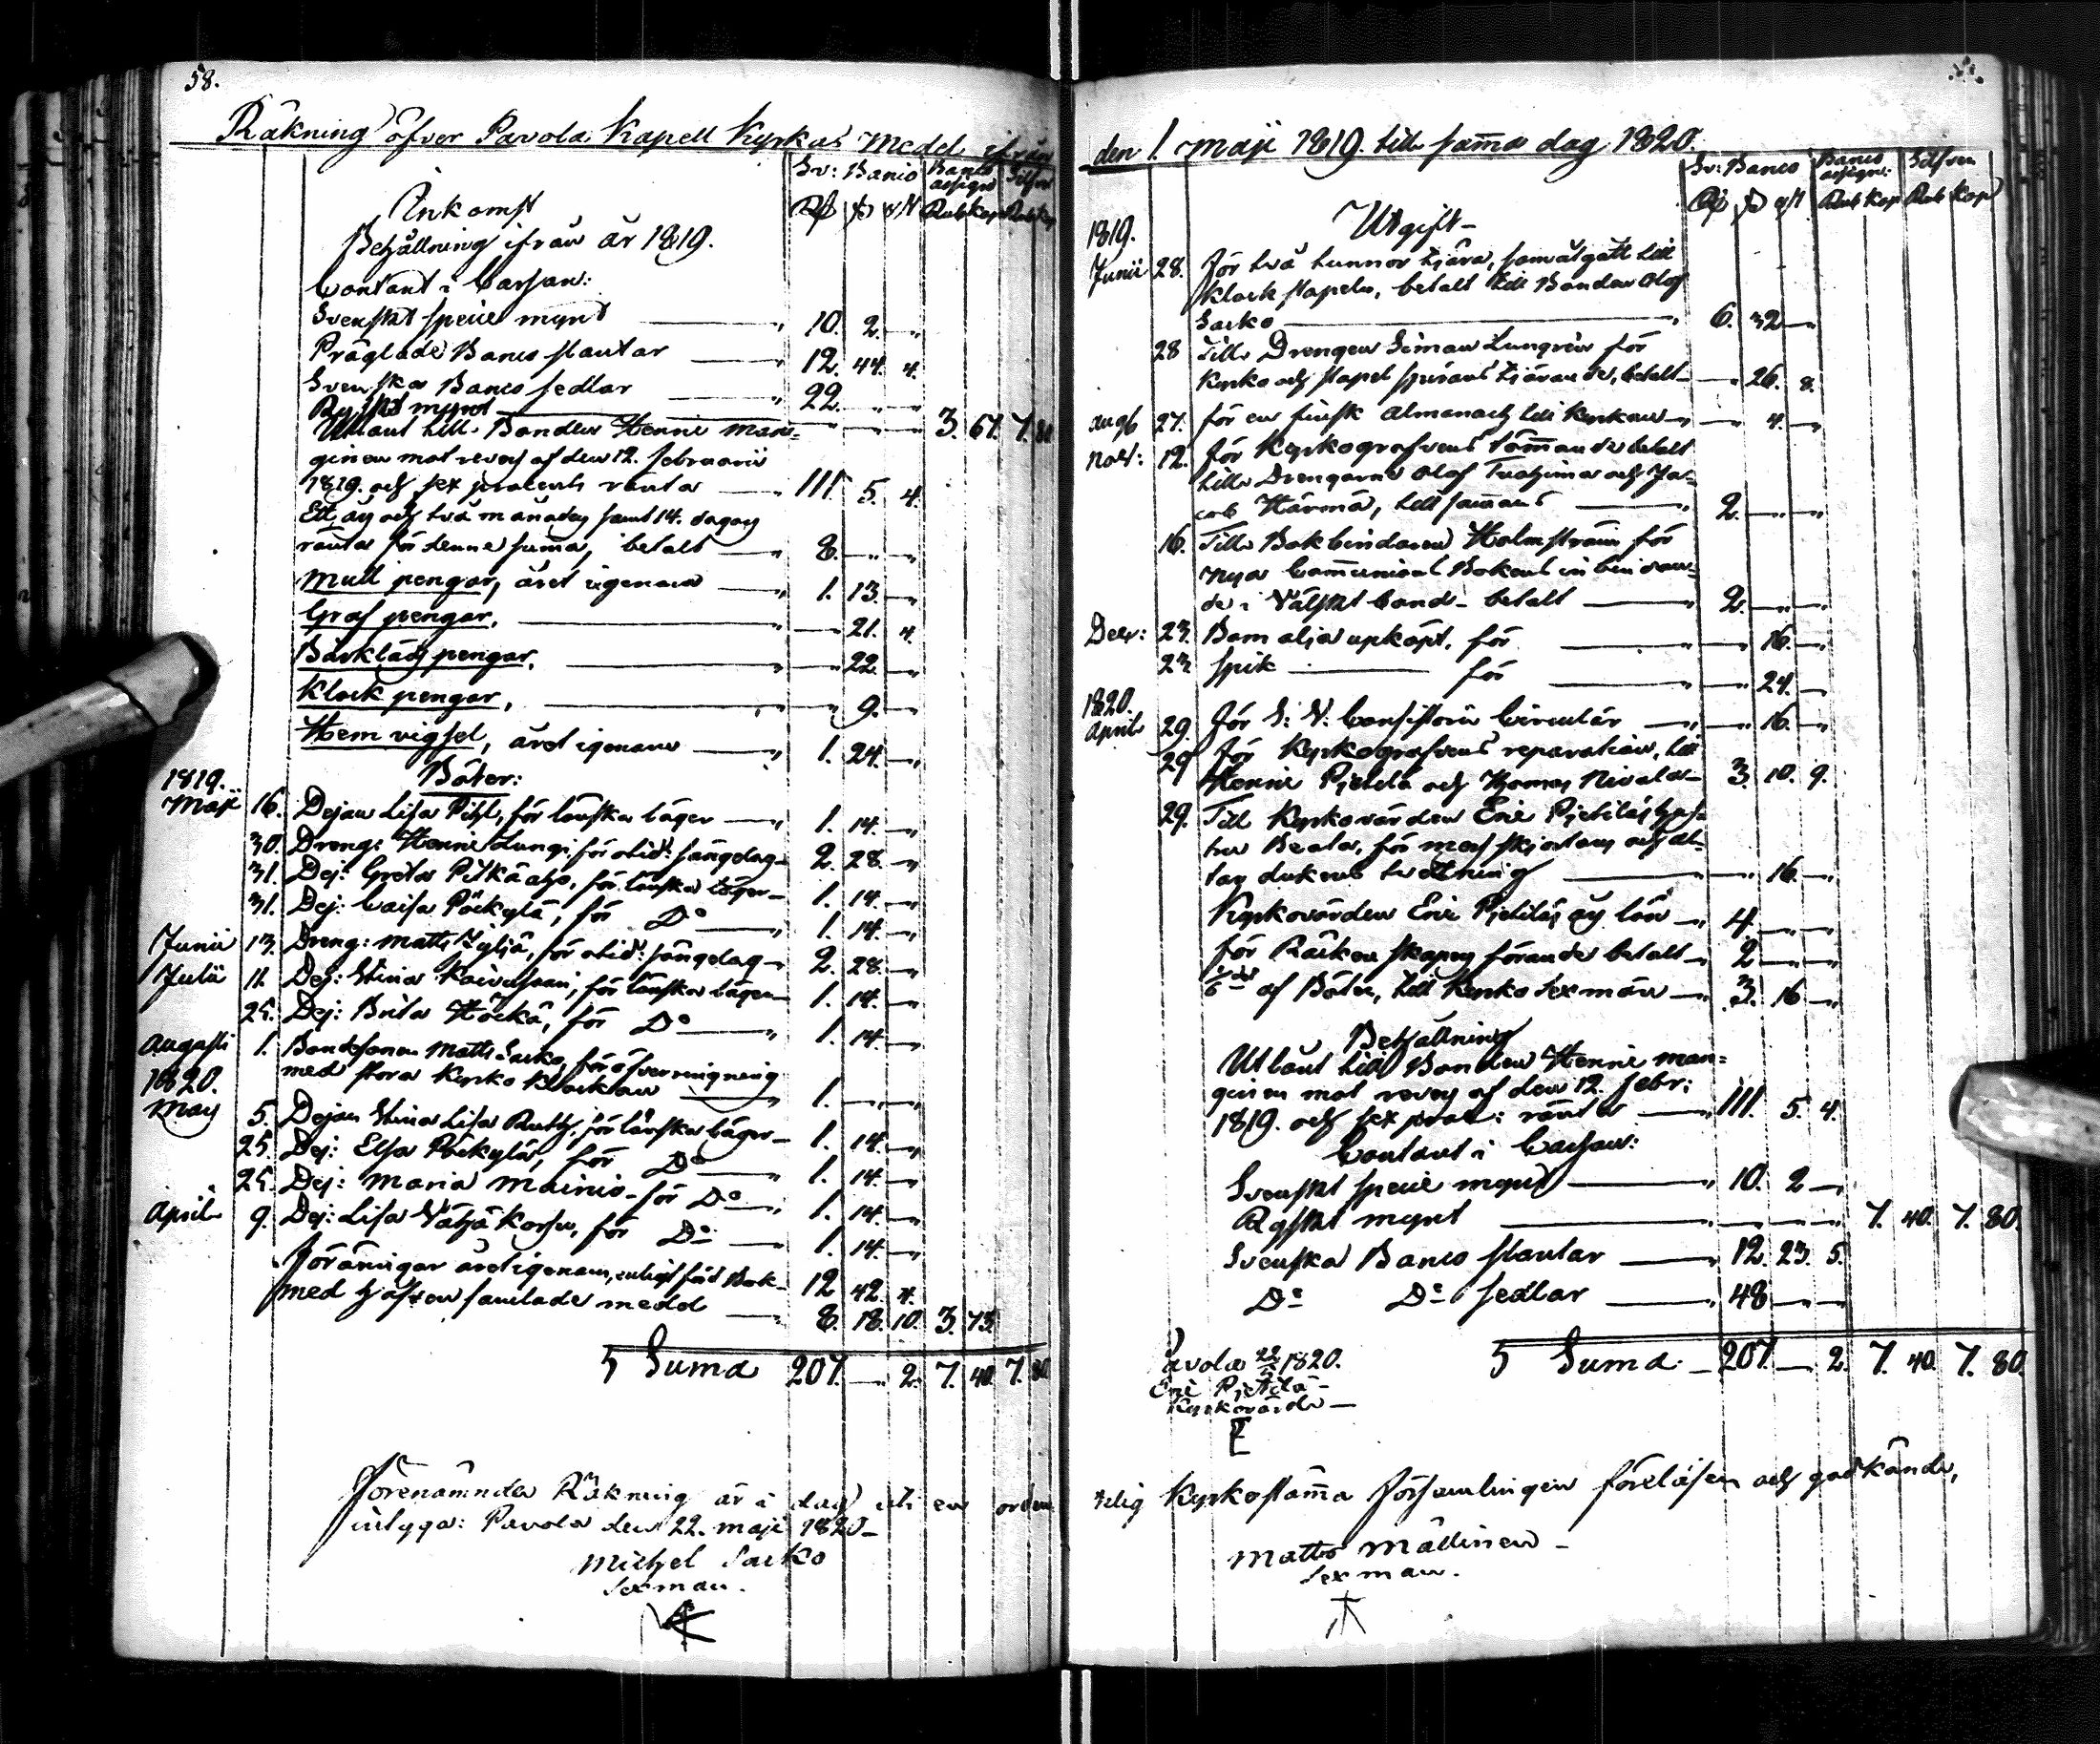 58.
Räkning öfver Pavola Kapell Kyrkas Medel ifrån
Sv: Banco Banco assign: Silfver
Inkomst
Rd ß rst Rub Kop Rub Kop
Behållning ifrån år 1819.
Contant i Cassan:
Svenskt specie mynt 10. 2. "
Präglade Banco slantar 12. 44. 4.
Svenska Banco sedlar 22. " "
Ryskt mynt " " " 3. 67. 7. 80
Utlånt till Bonden Henric Man-
ginen mot revers af den 12. Februarii
1819. och sex procents ränta 111. 5. 4.
Ett års och två månaders samt 14. dagars
ränta för denne suma, betalt 8. " "
Mull pengar, året igenom 1. 13. "
Graf pengar, " 21. 4.
Bårkläds pengar, " 22. "
Klock pengar, " 9. "
Hem vigsel, året igenom 1. 24. "
Böter:
1819.
Maji 16. Dejan Lisa Pihl, för lönska läger 1. 14. "
30. Dreng: Henric Lungi för otid: sängelag 2. 28. "
31. Dej: Greta Pitkäaho, för lönska läger 1. 14. "
31. Dej: Caisa Päckylä, för Do 1. 14. "
Junii 13. Dreng: Matts Ylijä, för otid: sängelag 2. 28. "
Julii 11. Dej: Stina Kaivosoja, för lönska läger 1. 14. "
25. Dej: Brita Höckä, för Do 1. 14. "
Augusti 1. Bondsonen Matts Sarko, för öfverringning
med stora Kyrko Klockan 1. " "
1820.
Mars 5. Dejan Stina Lisa Ruth, för lönska läger 1. 14. "
25. Dej: Elsa Päckylä, för Do 1. 14. "
25. Dej: Maria Mainio för Do 1. 14. "
April 9. Dej: Lisa Vähä Korsu, för Do 1. 14. "
Föräringar året igenom, enligt förd Bok 12 42. 4.
Med håfven samlade medel 8. 18. 10. 3. 73.
Suma 207. " 2. 7. 40. 7. 80
Förenämnda Räkning är i dag uti en orden
intyga: Pavola den 22. Maji 1820
Michel Sarko
Sexman.
den 1. Maji 1819. till sama dag 1820.
Sv: Banco Banco assign: Silfver
Rd ß rst Rub Kop Rub Kop
Utgift
1819.
Junii 28. För två tunnor tjära, som åtgått till
Klockstapeln, betalt till Bonden Olof
Sarko 6. 32. "
28 Till Drengen Simon Lungrén för
Kyrko och stapel spirans tjärande, betalt " 26. 8.
Aug: 27. för en finsk Almanach till Kyrkan " 4. "
Nov: 12. För Kyrkografvens tömande betalt
till Drengarne Olof Tuohima och Ja-
cob Härmä, till samans 2. " "
16. Till Bokbindaren Holmström för
nya Comunions Bokens inbindan-
de i Välskt band betalt 2. " "
Decr: 23. Bomolja upköpt, för " 16. "
23 Spik för " 24. "
1820.
April 29. För S: V: Consistorii Circulär " 16. "
29 För Kyrkografvens reparation, till
Henric Pietilä och Thomas Nivala 3. 10. 9.
29. Till Kyrkovärden Eric Pietiläs hus-
tru Beata, för mess skjortans och al-
tar dukens tvettning " 16. "
Kyrkovärden Eric Pietiläs års lön 4. " "
för Räkenskapens förande betalt 2 " "
1/6 del af Böter, till Kyrko Sexmän 3. 16 "
Behållning
Utlånt till Bonden Henric Man-
ginen mot revers af den 12. Febr:
1819. och sex proc: ränta 111. 5. 4.
Contant i Cassan:
Svenskt specie mynt 10. 2 "
Ryskt mynt " " " 7. 40. 7. 80.
Svenska Banco slantar 12. 23. 5.
Do Do sedlar 48 " "
Suma 207. " 2. 7. 40. 7. 80.
Pavola 22/5 1820.
Eric Pietilä
Kyrkovärd
telig Kyrkostäma Församlingen föreläsen och godkänd,
Matts Mällinen
Sexman.